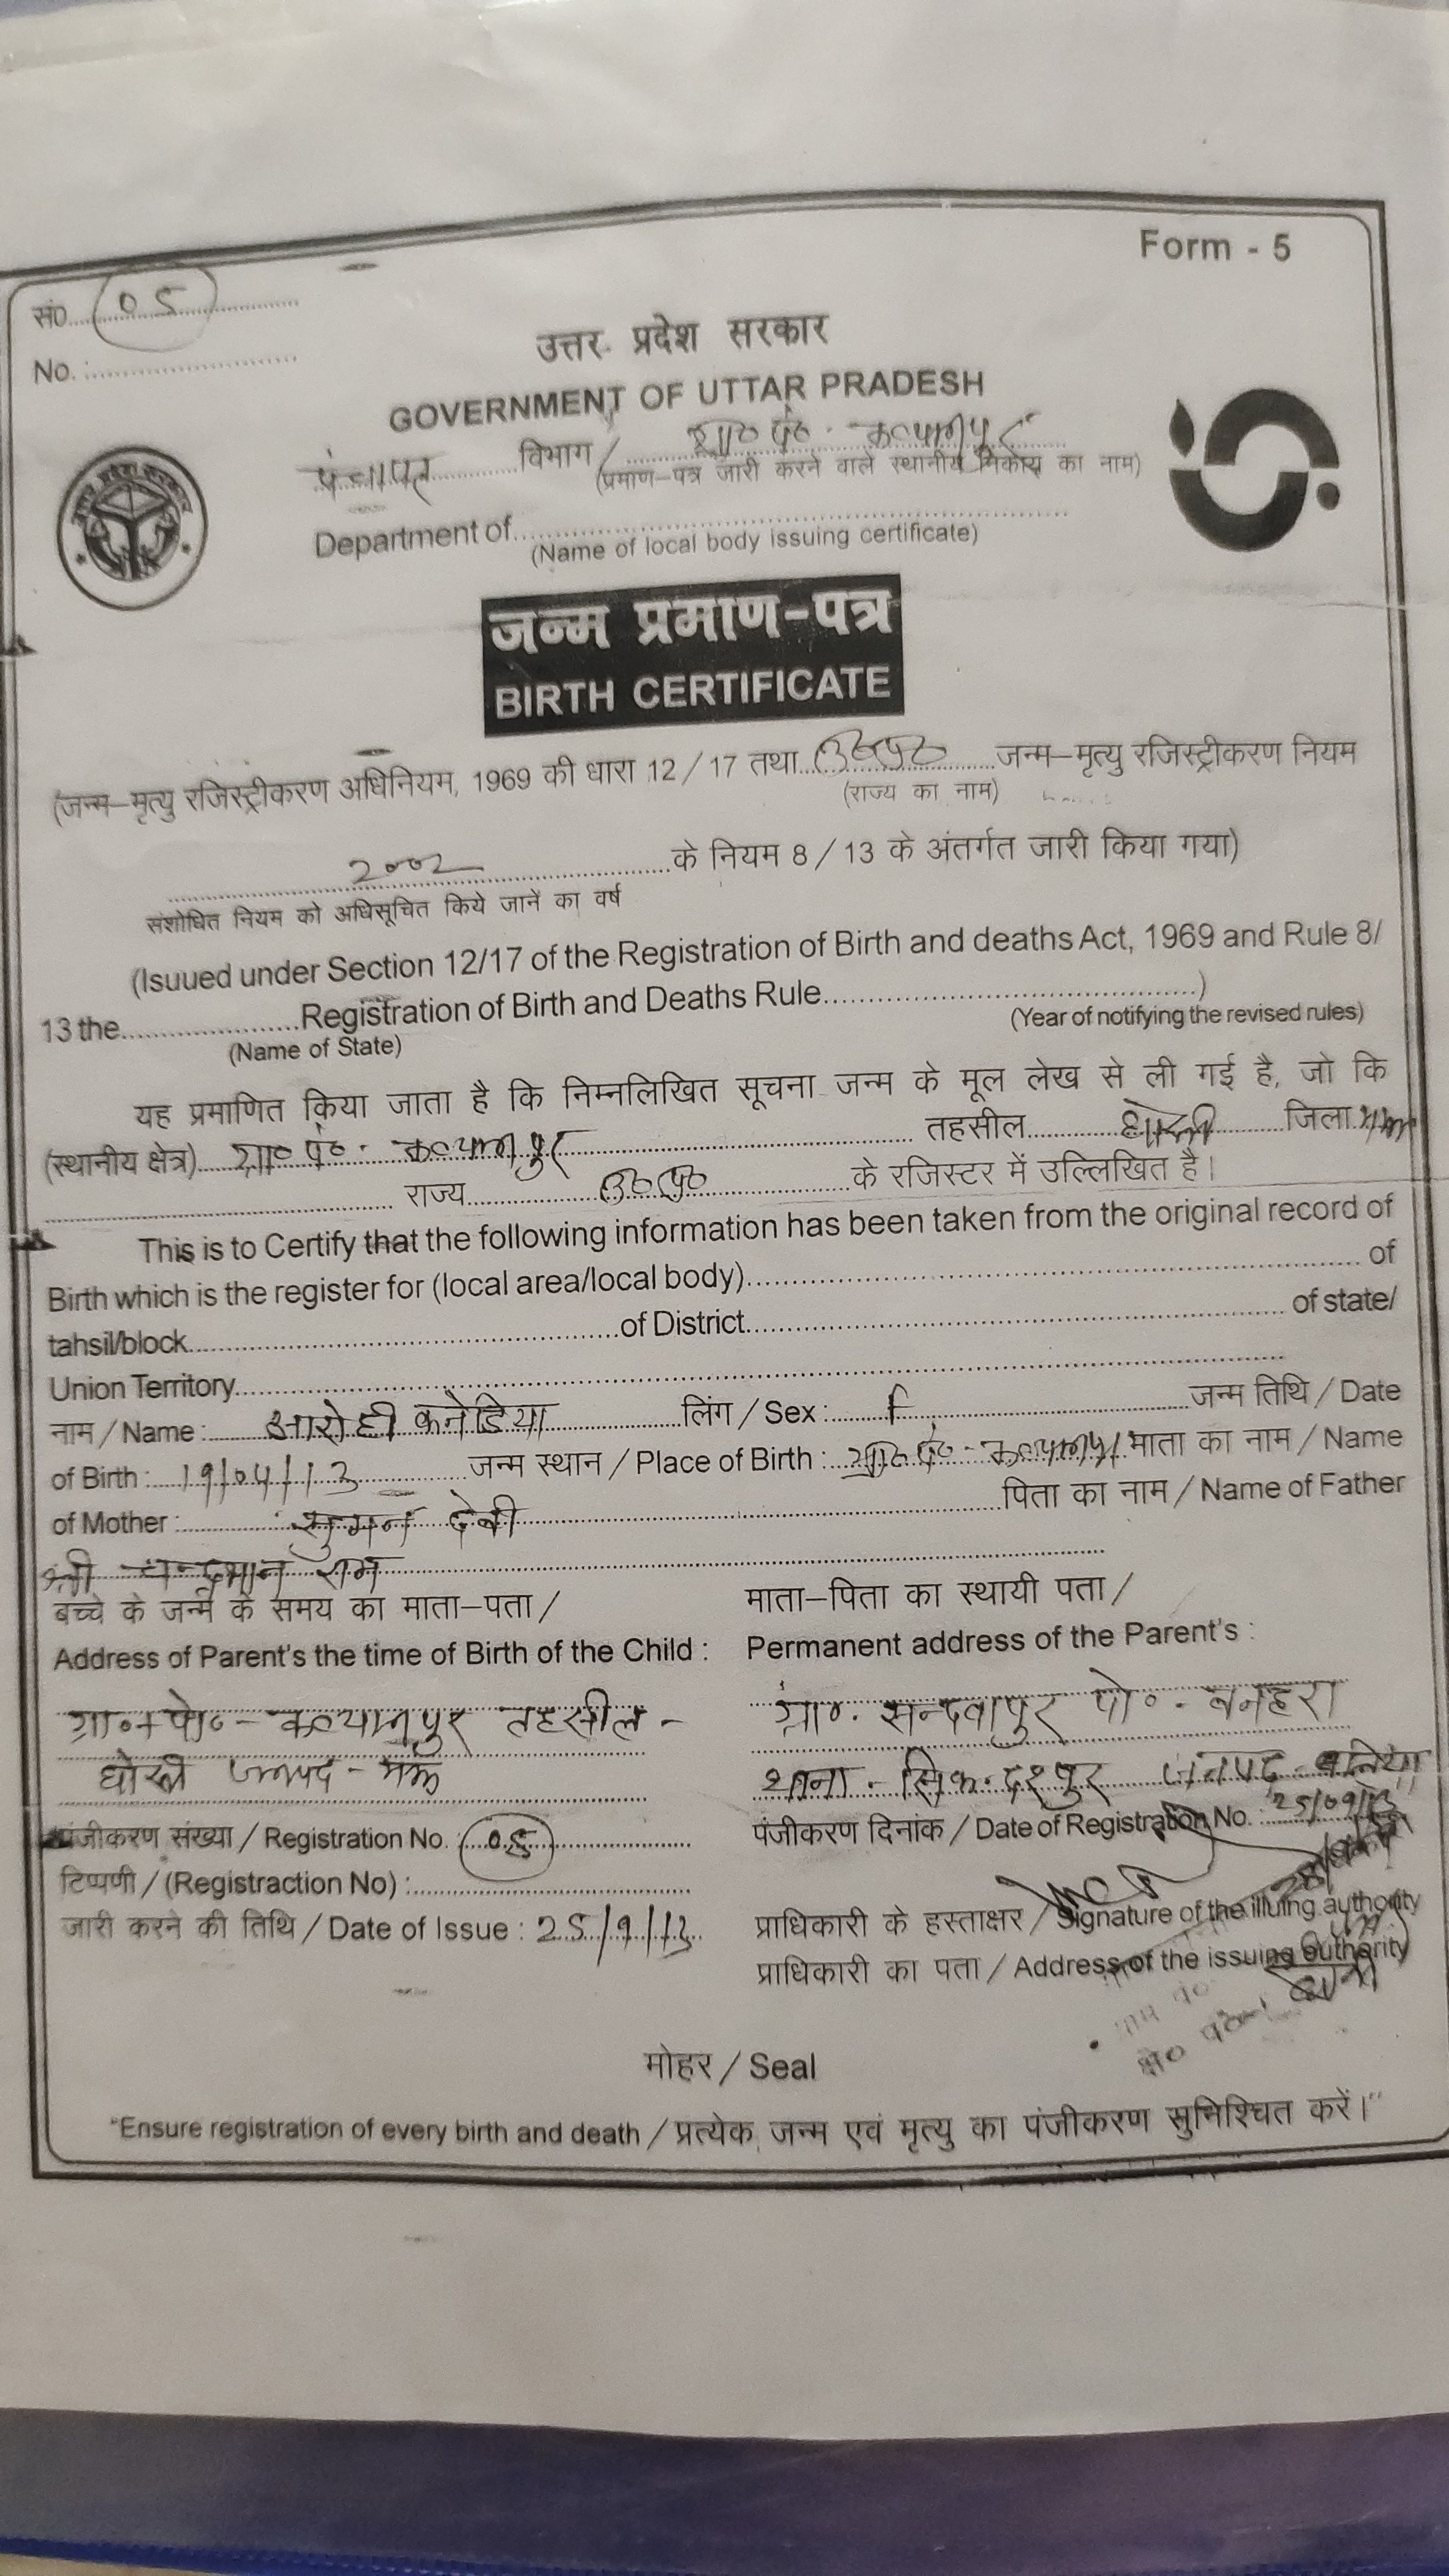 Form - 5
सं0 05
No. :
उत्तर प्रदेश सरकार
GOVERNMENT OF UTTAR PRADESH
पंचायत विभाग / ग्रा० पं० - कल्यानपुर
(प्रमाण-पत्र जारी करने वाले स्थानीय निकाय का नाम)
Department of
(Name of local body issuing certificate)
जन्म प्रमाण-पत्र
BIRTH CERTIFICATE
(जन्म-मृत्यु रजिस्ट्रीकरण अधिनियम, 1969 की धारा 12 / 17 तथा उ०प्र० जन्म-मृत्यु रजिस्ट्रीकरण नियम
(राज्य का नाम)
2002 के नियम 8 / 13 के अंतर्गत जारी किया गया)
संशोधित नियम को अधिसूचित किये जानें का वर्ष
(Isuued under Section 12/17 of the Registration of Birth and deaths Act, 1969 and Rule 8/
13 the Registration of Birth and Deaths Rule )
(Name of State) (Year of notifying the revised rules)
यह प्रमाणित किया जाता है कि निम्नलिखित सूचना जन्म के मूल लेख से ली गई है, जो कि
(स्थानीय क्षेत्र) ग्रा० पं० - कल्यानपुर तहसील घोसी जिला मऊ
राज्य उ०प्र० के रजिस्टर में उल्लिखित है।
This is to Certify that the following information has been taken from the original record of
Birth which is the register for (local area/local body) of
tahsil/block of District of state/
Union Territory
नाम / Name : आरोही कनेडिया लिंग / Sex : F जन्म तिथि / Date
of Birth : 19/04/13 जन्म स्थान / Place of Birth : ग्रा० पं० - कल्यानपुर माता का नाम / Name
of Mother : सुमन देवी पिता का नाम / Name of Father
श्री चन्द्रभान राम
बच्चे के जन्म के समय का माता-पता / माता-पिता का स्थायी पता /
Address of Parent's the time of Birth of the Child : Permanent address of the Parent's :
ग्रा०+पो०- कल्यानपुर तहसील - ग्रा०- सन्दवापुर पो०- बनहरा
घोसी जनपद - मऊ थाना - सिकन्दरपुर जनपद - बलिया
पंजीकरण संख्या / Registration No. : 05 पंजीकरण दिनांक / Date of Registration No. : 25/09/13
टिप्पणी / (Registraction No) :
जारी करने की तिथि / Date of Issue : 25/9/13 प्राधिकारी के हस्ताक्षर / Signature of the illuing authority
प्राधिकारी का पता / Address of the issuing outhority
मोहर / Seal
"Ensure registration of every birth and death / प्रत्येक जन्म एवं मृत्यु का पंजीकरण सुनिश्चित करें।"